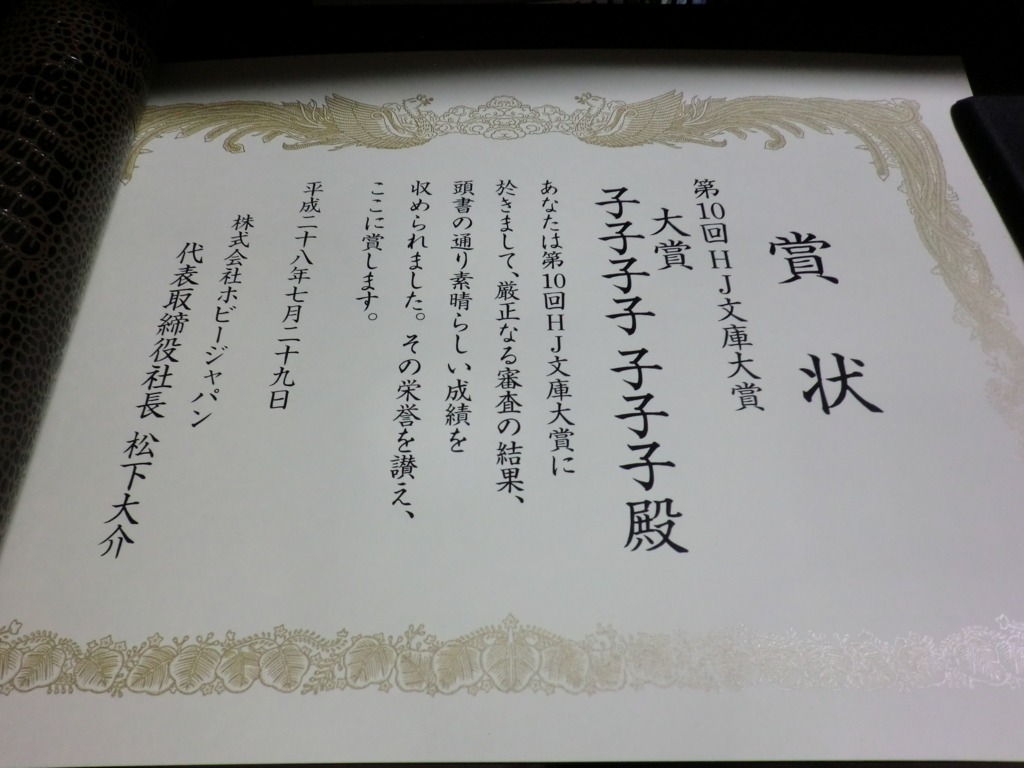 賞状
第10回HJ文庫大賞
大賞
子子子子 子子子殿
あなたは第10回HJ文庫大賞に
於きまして、厳正なる審査の結果、
頭書の通り素晴らしい成績を
収められました。その栄誉を讃え、
ここに賞します。
平成二十八年七月二十九日
株式会社ホビージャパン
代表取締役社長 松下大介